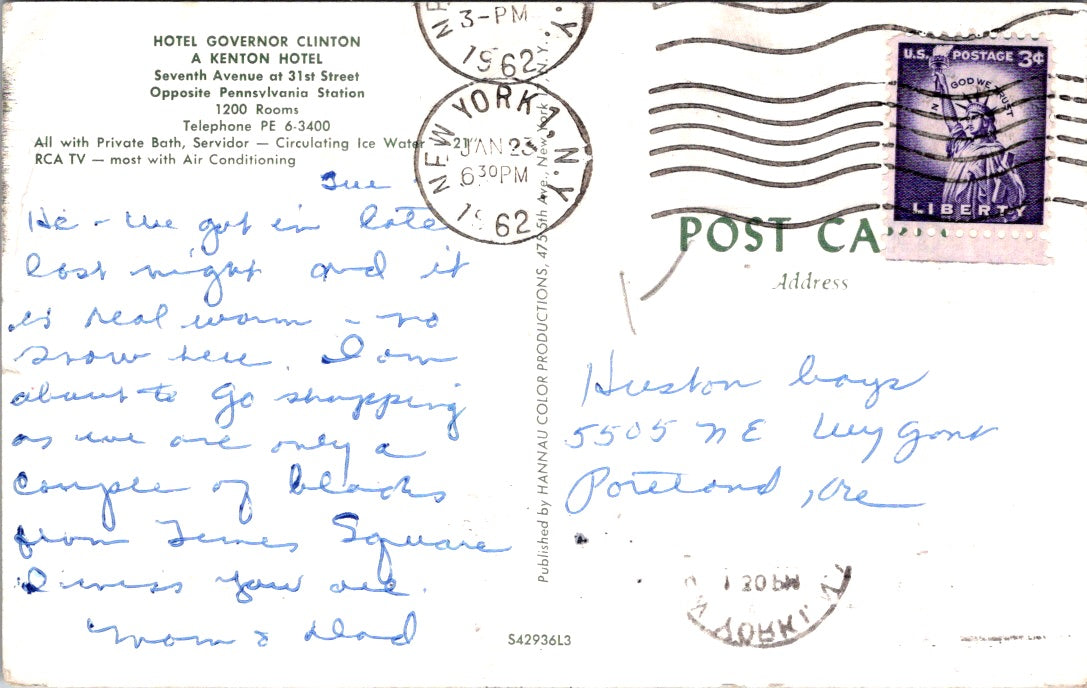 HOTEL GOVERNOR CLINTON
A KENTON HOTEL
Seventh Avenue at 31st Street
Opposite Pennsylvania Station
1200 Rooms
Telephone PE 6-3400
All with Private Bath, Servidor — Circulating Ice Water — 21"
RCA TV — most with Air Conditioning
Tue
Hi - We got in late
last night and it
is real warm - no
snow here. I am
about to go shopping
as we are only a
couple of blocks
from Times Square
I miss you all.
Mom & Dad
Published by HANNAU COLOR PRODUCTIONS, 475 5th Ave., New York N.Y.
S42936L3
3-PM
1962
NEW YORK 1, N.Y.
JAN 23
6 30 PM
1962
U.S. POSTAGE 3¢
IN GOD WE TRUST
LIBERTY
POST CA
Address
Huston boys
5505 N E Wygant
Portland, Ore
1 30 PM
YORK 1, N.Y.